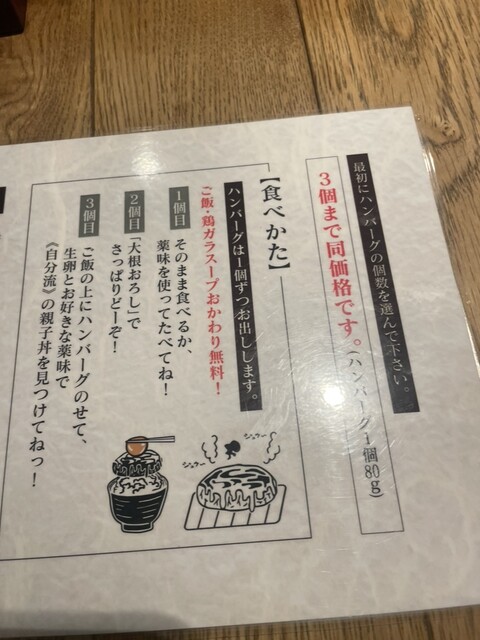 最初にハンバーグの個数を選んで下さい。
3個まで同価格です。(ハンバーグ1個80g)
【食べかた】
ハンバーグは1個ずつお出しします。
ご飯・鶏ガラスープおかわり無料!
1個目 そのまま食べるか、
薬味を使ってたべてね!
2個目 「大根おろし」で
さっぱりどーぞ!
3個目 ご飯の上にハンバーグのせて、
生卵とお好きな薬味で
《自分流》の親子丼を見つけてねっ!